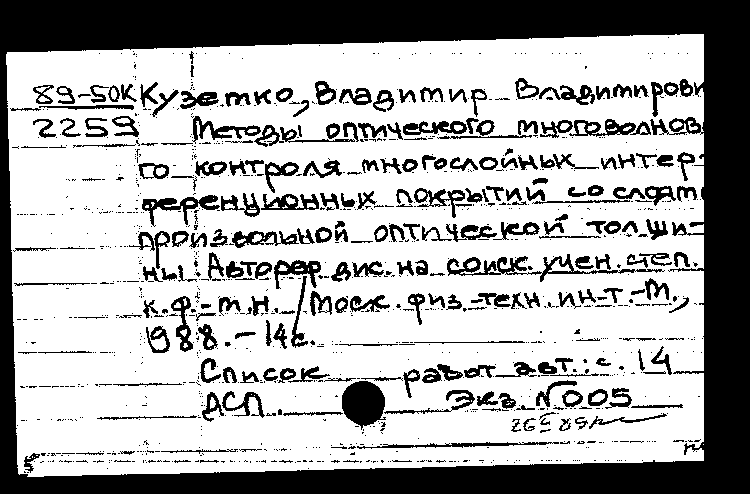 89-50К Куземко, Владимир Владимирови
2259 Методы оптического многоволнов
го контроля многослойных интер-
ференционных покрытий со слоями
произвольной оптической толщи-
ны: Автореф. дис. на соиск. учен. степ.
к.ф.-м.н. / Моск. физ.-техн. ин-т.-М.,
1988.-14с.
Список работ авт.: с. 14
ДСП. Экз. №005